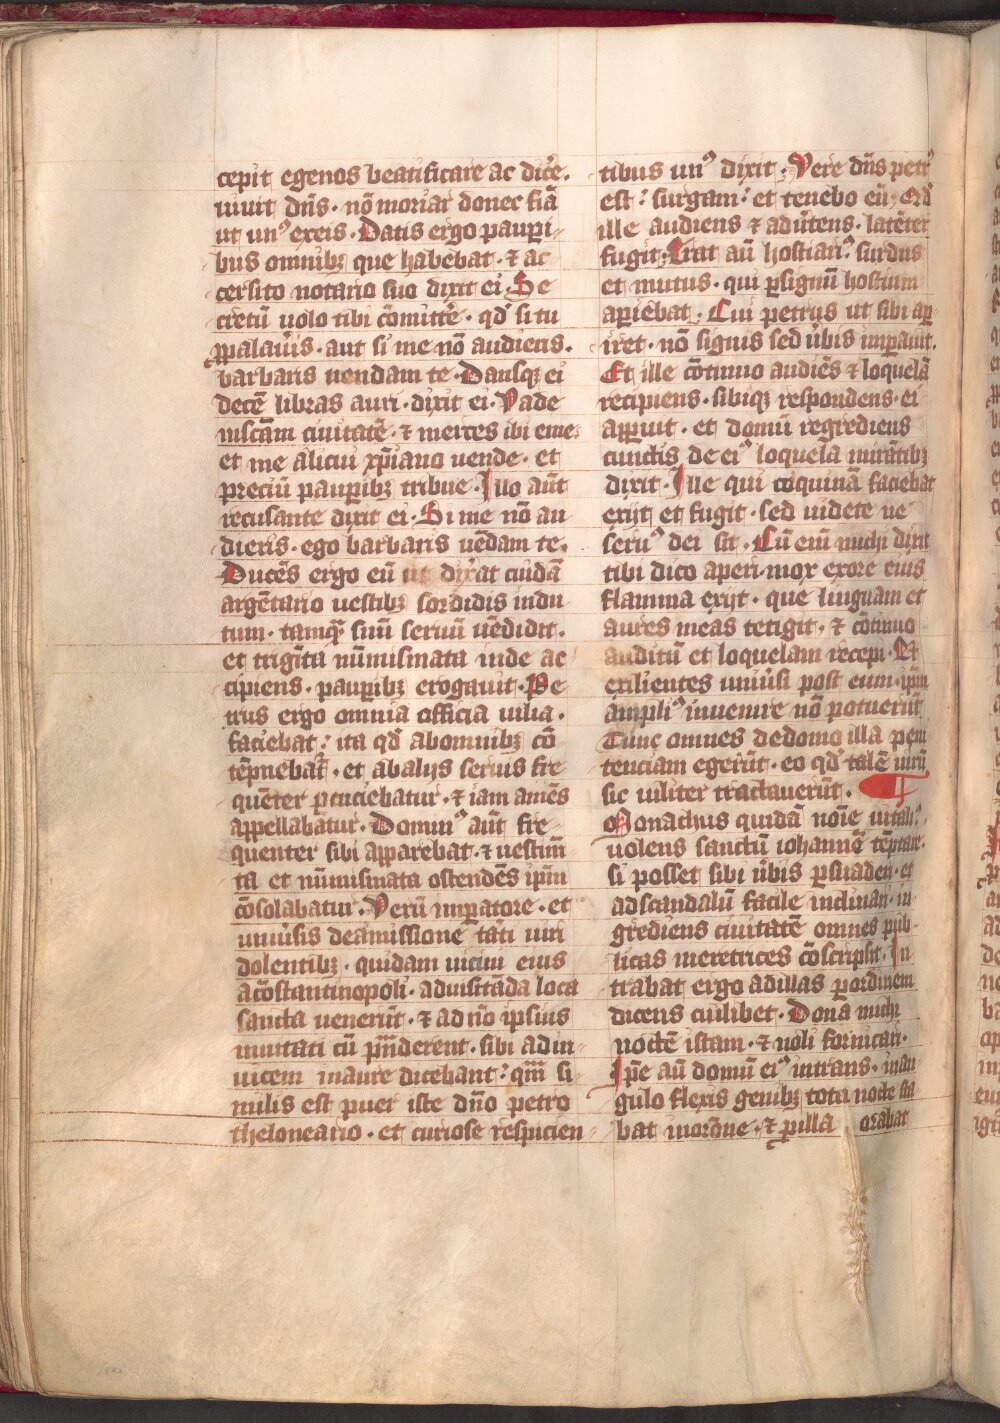 cepit egenos beatificare ac dic̄e.
uiuit dn̄s · nō moriar donec fiā
ut un⁹ ex eis · Datis ergo paup̲i-
bus omnibꝫ que habebat · ⁊ ac
cersito notario suo dixit ei · Se
cretū uolo tibi cōmitt̄e · qd̄ si tu
ꝓpalau̓is · aut si me nō audieris.
barbaris uendam te · Dansqꝫ ei
decē libras auri · dixit ei · Vade
in scām ciuitatē · ⁊ merces ibi eme:
et me alicui xp̄iano uende · et
preciū paup̲ibꝫ tribue · Illo aūt
recusante dixit ei · Si me nō au
dieris · ego barbaris uēdam te.
Ducēs ergo eū ut dix̓at cuidā
argētario uestibꝫ sordidis indu
tum · tamqᷓ suū seruū uēdidit.
et trigīta nūmismata inde ac
cipiens · paup̲ibꝫ erogauit · Pe
trus ergo omnia officia uilia ·
faciebat: ita qd̄ ab omnibꝫ cō
tēpnebat̉ · et ab alijs seruis fre
quēter ꝑcuciebatur · ⁊ iam amēs
appellabatur · Domin⁹ aūt fre
quenter sibi apparebat · ⁊ uestim̄
ta et nūmismata ostendēs ip̄m
cōsolabatur · Verū imp̲atore · et
uniu̓sis de amissione tāti uiri
dolentibꝫ · quidam uicini eius
a cōstantinopoli · ad uisitāda loca
sancta uenerūt · ⁊ ad n̄o ipsius
inuitati cū p̄nderent · sibi ad in-
uicem in aure dicebant: qm̄ si
milis est puer iste dn̄o petro
theloneario · et curiose respicien
tibus un⁹ dixit · Vere dn̄s petr⁹
est: surgam: et tenebo eū · Qd̄
ille audiens ⁊ adu̓tens · latēter
fugit · Erat aū hostiari⁹ surdus
et mutus · qui ꝑ signū hostium
ap̲iebat · Cui petrus ut sibi ap̲
iret · nō signis sed u̓bis imp̲auit.
Et ille cōtinuo audiēs ⁊ loquelā
recipiens · sibiqꝫ respondens · ei
ap̲uit · et domū regrediens
cunctis de ei⁹ loquela mirātibꝫ
dixit · Ille qui coquinā faciebat
exijt et fugit · sed uidete ne
seru⁹ dei sit · Cū eni michi dixit
tibi dico aperi · mox ex ore eius
flamma exijt · que linguam et
aures meas tetigit · ⁊ cōtinuo
auditū et loquelam recepi · Et
exilientes uniu̓si post eum · ip̄m
ampli⁹ inuenire nō potuerūt
Tunc omnes de domo illa peni
tenciam egerūt · eo qd̄ talē uirū
sic uiliter tractauerūt.
Monachus quidā noīe uitali⁹
uolens sanctū iohannē tēptare.
si posset sibi u̓bis p̲suaderi · et
ad scandalū facile inclinari · in-
grediens ciuitatē omnes pub-
licas meretrices cōscripsit · In
trabat ergo ad illas ꝑ ordinem
dicens cuilibet · Dona michi
noctē istam · ⁊ noli fornicari ·
Ip̄e aū domū ei⁹ intrans · in an
gulo flexis genibꝫ tota nocte sta
bat in or̄one · ⁊ ꝑ illa orabat